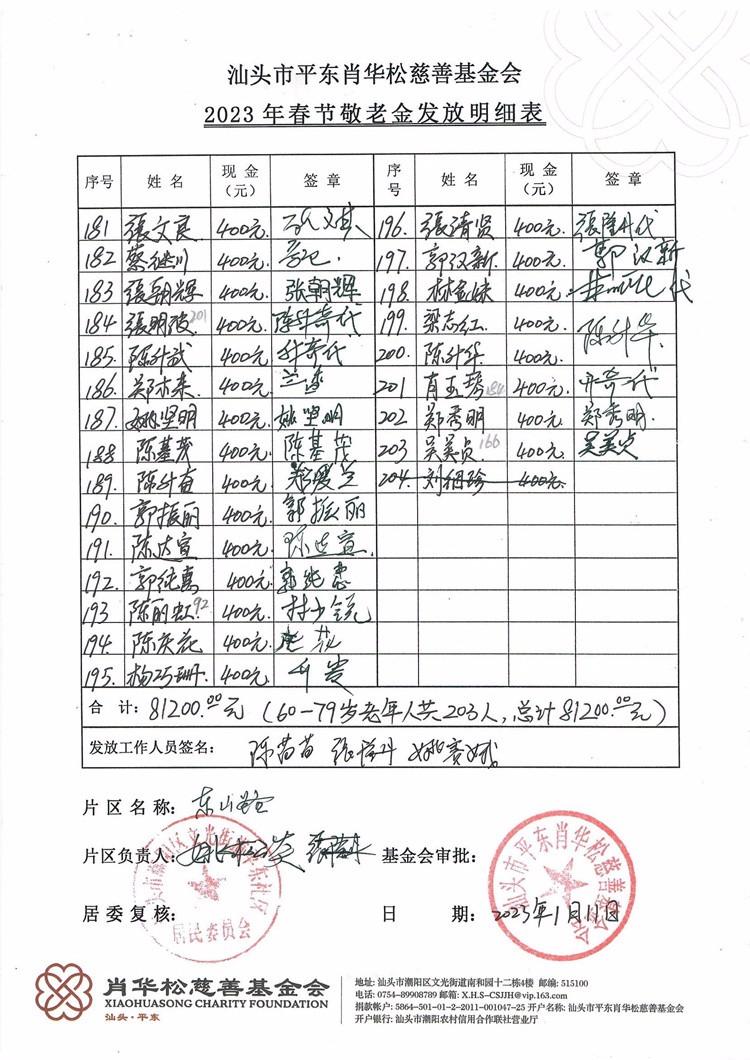 汕头市平东肖华松慈善基金会
2023年春节敬老金发放明细表
序号 姓名 现金（元） 签章 序号 姓名 现金（元） 签章
181 張文良 400元. 196. 張清贤 400元.
182 蔡继川 400元. 197. 郭汉新. 400元. 郭汉新
183 張朝辉 400元. 张朝辉 198. 400元. 代
184 張明 201 400元. 陈升奇代 199. 梁志红. 400元.
185. 陈升武 400元. 升奇代 200. 陈升华 400元. 陈升华
186. 郑亦来. 400元. 201 肖玉 184 400元. 升奇代
187. 姚坚明 400元. 姚坚明 202 郑秀明 400元. 郑秀明.
188 陈基茂 400元. 陈基茂 203 吴美贞 166 400元. 吴美贞
189. 400元. 郑爱兰 204. 刘 珍 400元.
190. 郭振丽 400元. 郭振丽
191. 陈达宣 400元. 陈达宣.
192. 郭纯 400元. 郭纯
193 陈丽虹 92 400元. 林少
194. 陈庆花 400元. 花
195. 杨巧珊. 400元.
合 计: 81200.00元 (60-79岁老年人共203人, 总计81200.00元)
发放工作人员签名: 陈苗苗
片区名称: 东山
片区负责人:
基金会审批:
文光街道平东社区
居民委员会
汕头市平东肖华松慈善基金会
居委复核: 日 期: 2023年1月11日
肖华松慈善基金会
XIAOHUASONG CHARITY FOUNDATION
汕头·平东
地址: 汕头市潮阳区文光街道南和园十二栋4楼 邮编: 515100
电话: 0754-89908789 邮箱: X.H.S-CSJJH@vip.163.com
捐款帐户: 5864-501-01-2-2011-001047-25 开户名称: 汕头市平东肖华松慈善基金会
开户银行: 汕头市潮阳农村信用合作联社营业厅